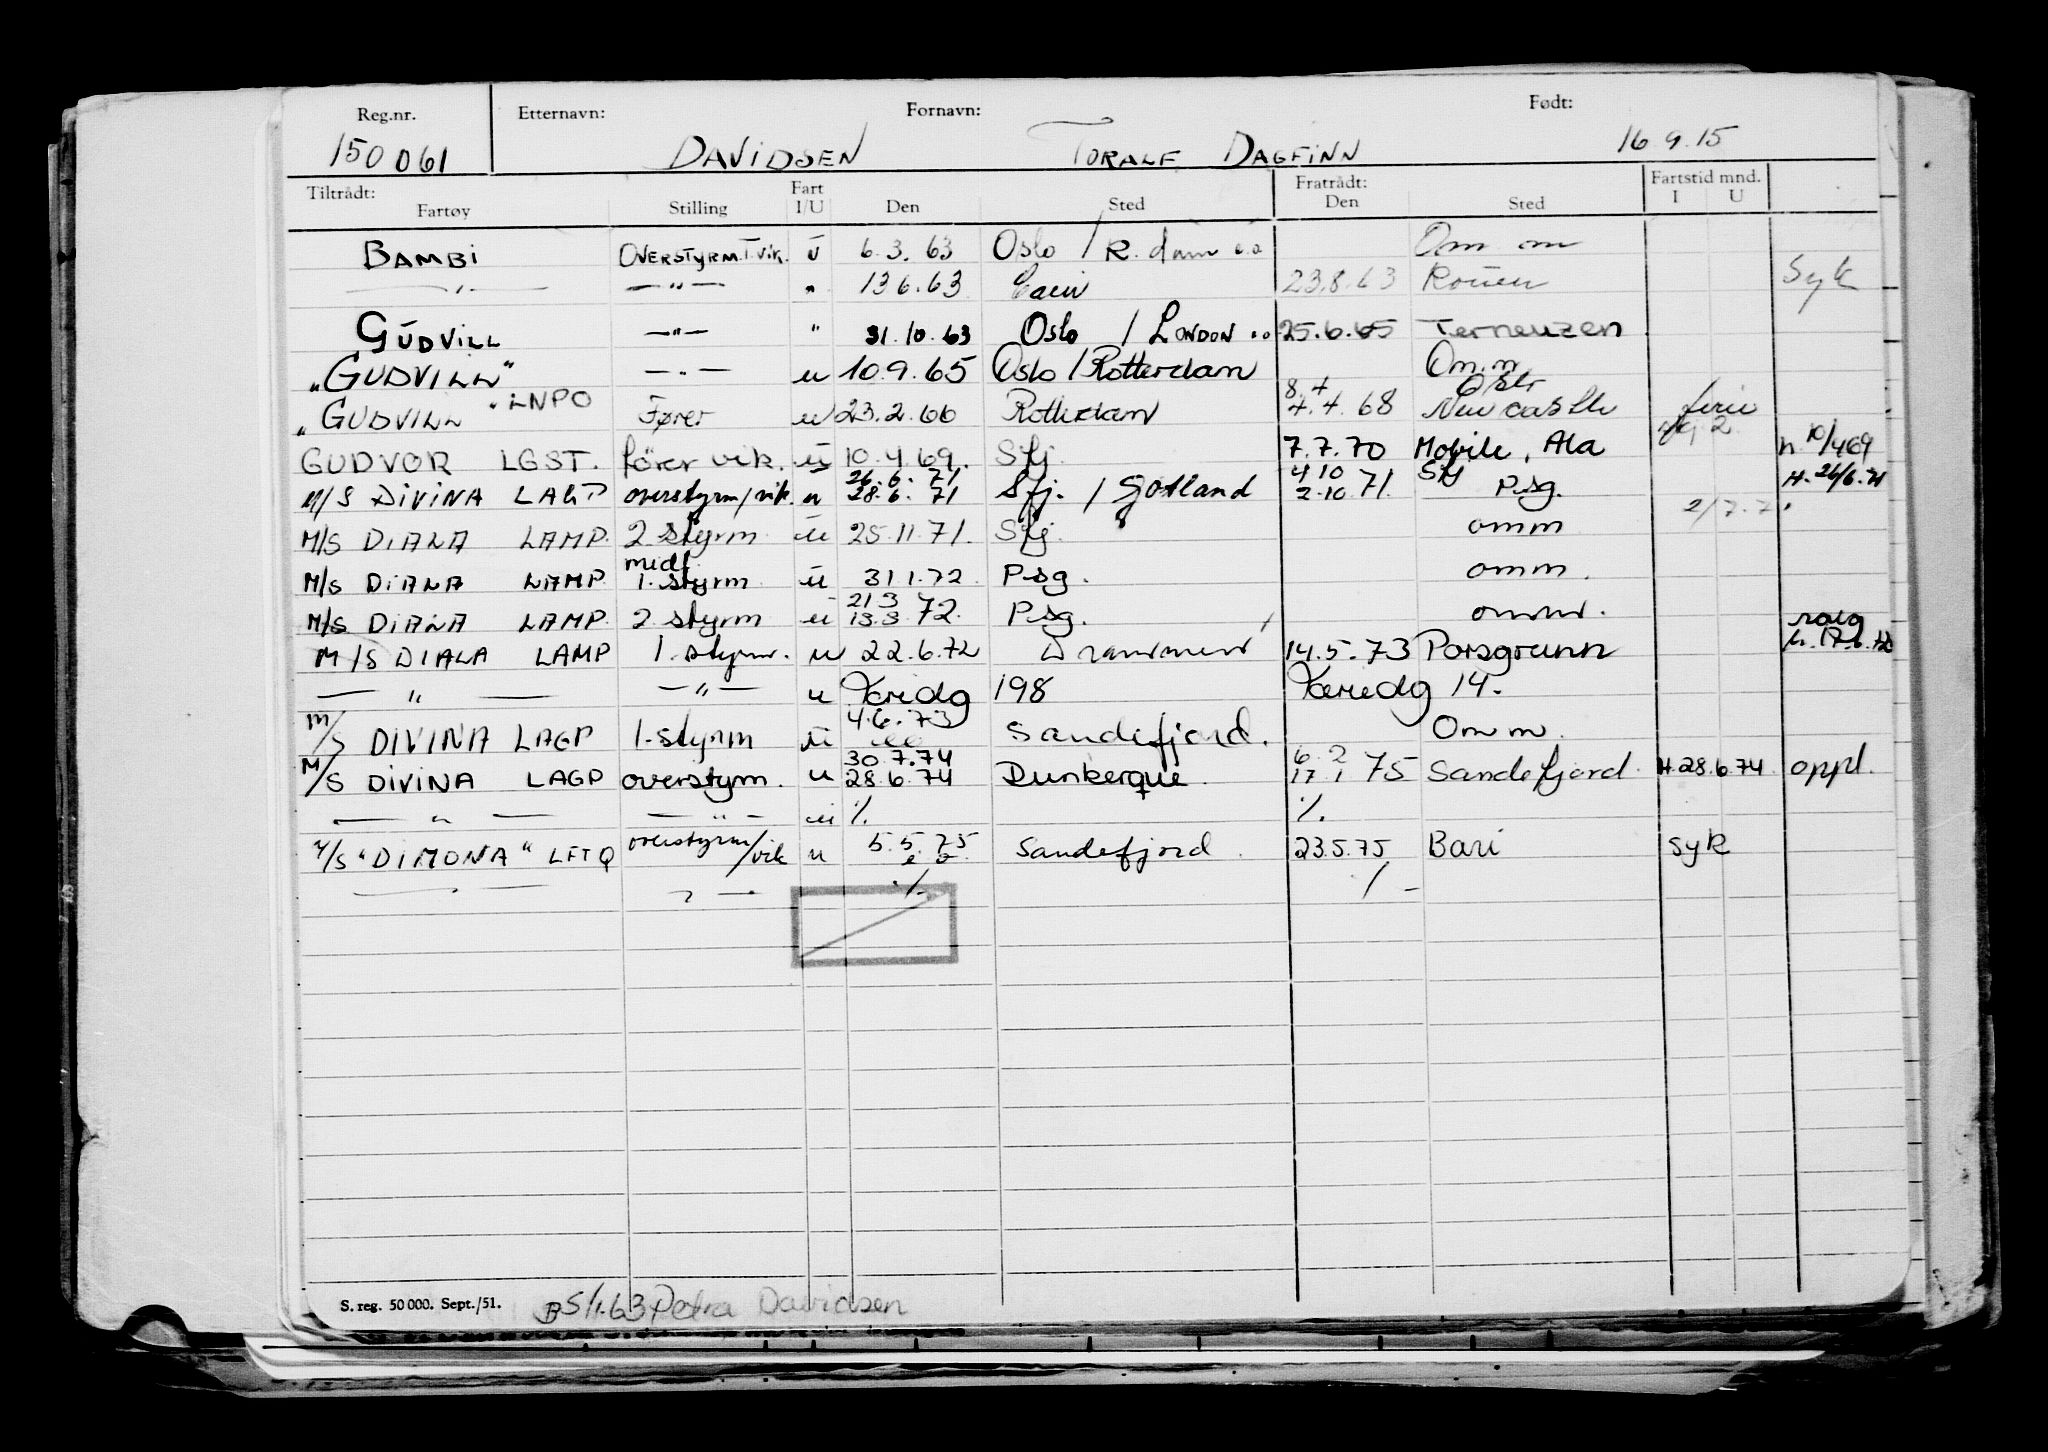 Reg.nr. Etternavn: Fornavn: Født:
150061 DAVIDSEN TORALF DAGFINN 16.9.15
Tiltrådt: Fart Fratrådt: Fartstid mnd.
Fartøy Stilling I/U Den Sted Den Sted I U
BAMBI OVERSTYRM.T.VIK. ū 6.3.63 Oslo / R.dam o.a Om m
—"— —"— " 13.6.63 Caen 23.8.63 Rouen Syk
GŪDVILL —"— " 31.10.63 Oslo / LONDON 25.6.65 Terneuzen
"GUDVILL" —"— u 10.9.65 Oslo / Rotterdam Om.m
"GUDVILL" LNPO Fører u 23.2.66 Rotterdam 8.4 4.4.68 Oslo Newcastle ferie
GUDVOR LGST. fører vik. ū 10.4.69. Sfj. 7.7.70 Mobile, Ala h 10/469
M/S DIVINA LAGP overstyrm/vik u 26.6.71 28.6.71 Sfj. / Gotland 4.10 2.10.71. Sfj Psg. H. 26/6.71
M/S DIANA LAMP. 2.styrm ū 25.11.71. Sfj. omm
M/S DIANA LAMP. midl. 1.styrm ū 31.1.72 Psg. omm.
M/S DIANA LAMP. 2.styrm ū 21.3 13.3.72. Psg. omm.
M/S DIANA LAMP 1.styrm. u 22.6.72 Drammen 14.5.73 Porsgrunn h.17.6.72
—"— —"— u Varedg 198 Varedg 14.
M/S DIVINA LAGP 1.styrm ū 4.6.73 Sandefjord. Omm.
M/S DIVINA LAGP overstyrm. u 30.7.74 28.6.74 Dunkerque. 6.2 17.1 75 Sandefjord. H.28.6.74. oppl.
—"— —"— ū ./. ./.
M/S "DIMONA" LFTQ overstyrm/vik u 5.5.75 Sandefjord. 23.5.75 Bari syk
—"— —"— ./. ./.
S. reg. 50 000. Sept./51. B 5/1.63 Petra Davidsen